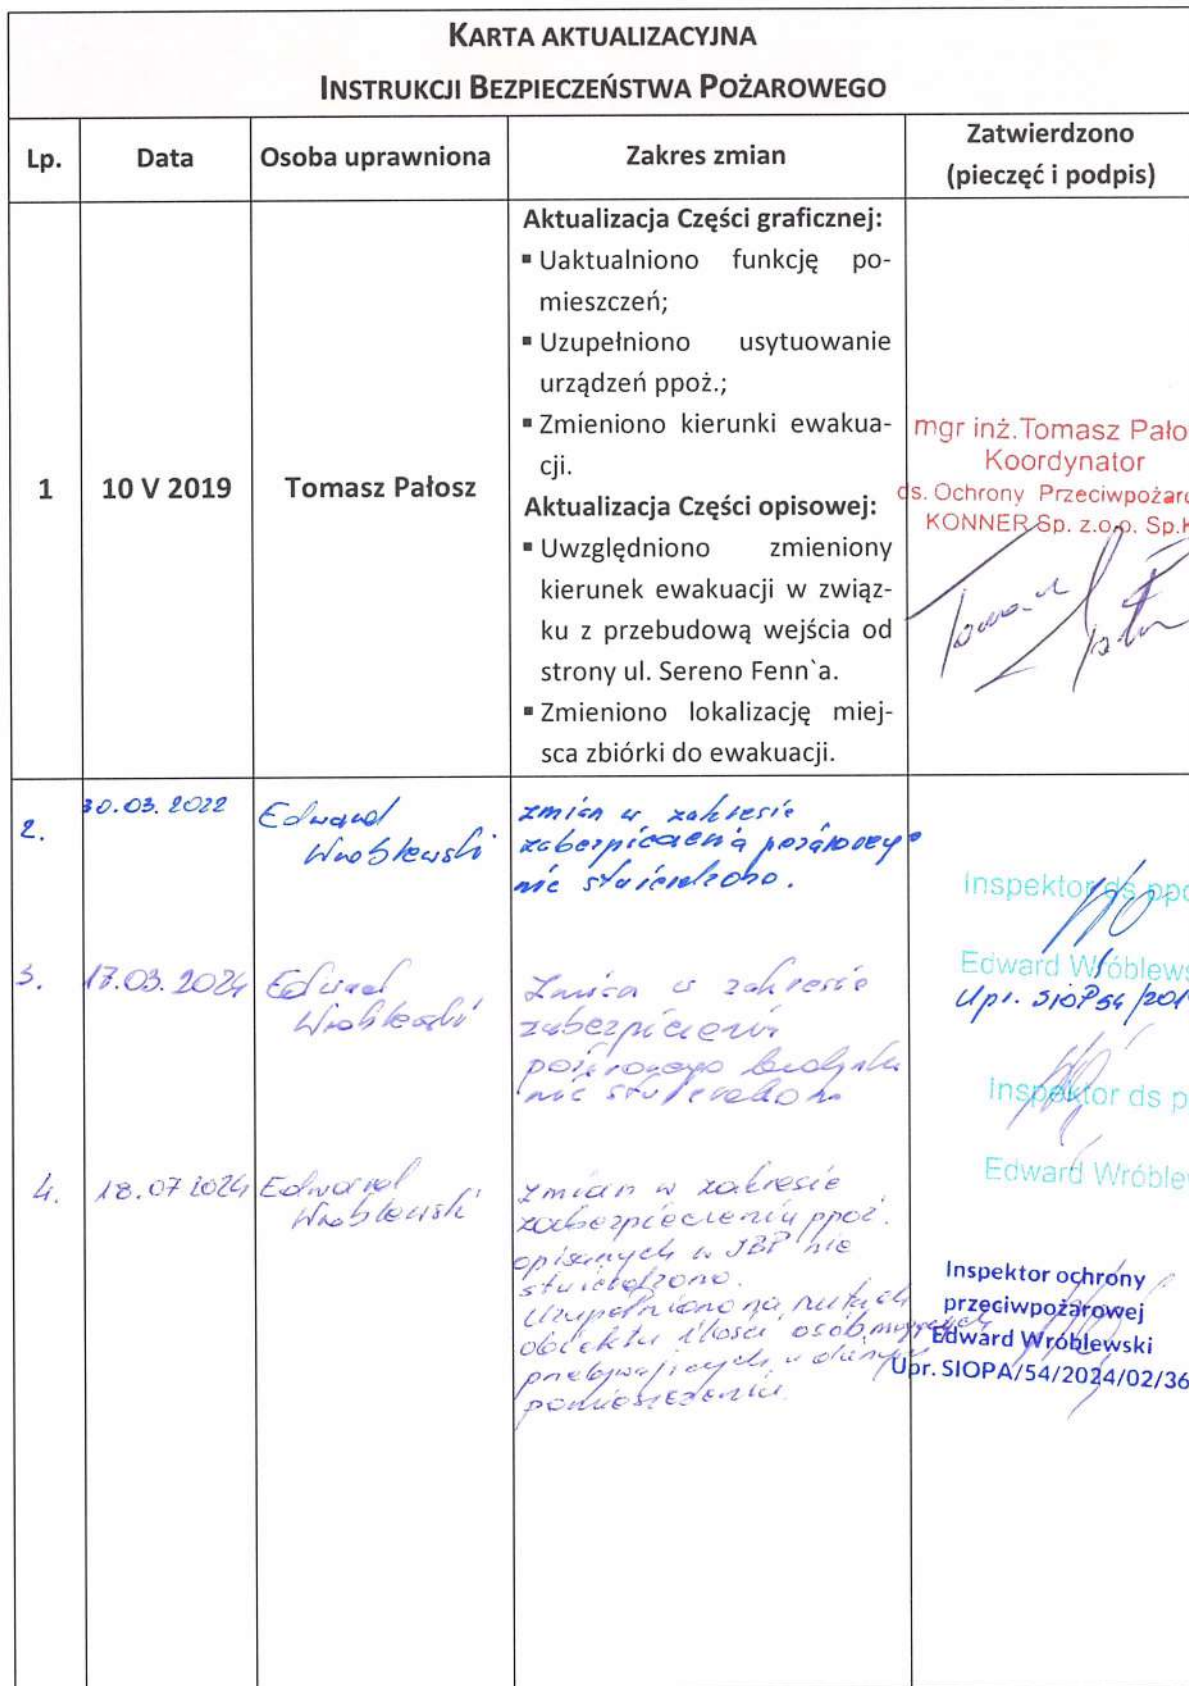 KARTA AKTUALIZACYJNA
INSTRUKCJI BEZPIECZEŃSTWA POŻAROWEGO
Lp. Data Osoba uprawniona Zakres zmian Zatwierdzono
(pieczęć i podpis)
1 10 V 2019 Tomasz Pałosz
Aktualizacja Części graficznej:
▪ Uaktualniono funkcję po-
mieszczeń;
▪ Uzupełniono usytuowanie
urządzeń ppoż.;
▪ Zmieniono kierunki ewakua-
cji.
Aktualizacja Części opisowej:
▪ Uwzględniono zmieniony
kierunek ewakuacji w związ-
ku z przebudową wejścia od
strony ul. Sereno Fenn`a.
▪ Zmieniono lokalizację miej-
sca zbiórki do ewakuacji.
mgr inż.Tomasz Pało
Koordynator
ds. Ochrony Przeciwpożaro
KONNER Sp. z.o.o. Sp.K
2. 30.03.2022 Edward
Wróblewski
zmian w zakresie
zabezpieczenia pożarowego
nie stwierdzono.
Inspektor ds ppo
Edward Wróblews
Upr. SIOP 54/201
3. 17.03.2024 Edward
Wróblewski
Zmian w zakresie
zabezpieczenia
pożarowego budynku
nie stwierdzono
Inspektor ds p
Edward Wróblew
4. 18.07 2024 Edward
Wróblewski
Zmian w zakresie
zabezpieczenia ppoż.
opisanych w IBP nie
stwierdzono.
Uzupełniono na rzutach
obiektu ilości osób mogących
przebywających w danym
pomieszczeniu.
Inspektor ochrony
przeciwpożarowej
Edward Wróblewski
Upr. SIOPA/54/2024/02/36